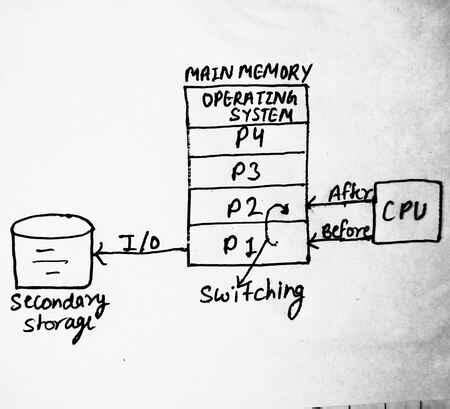 MAIN MEMORY
OPERATING
SYSTEM
P4
P3
P2
After
CPU
Before
P1
I/O
Switching
Secondary
Storage